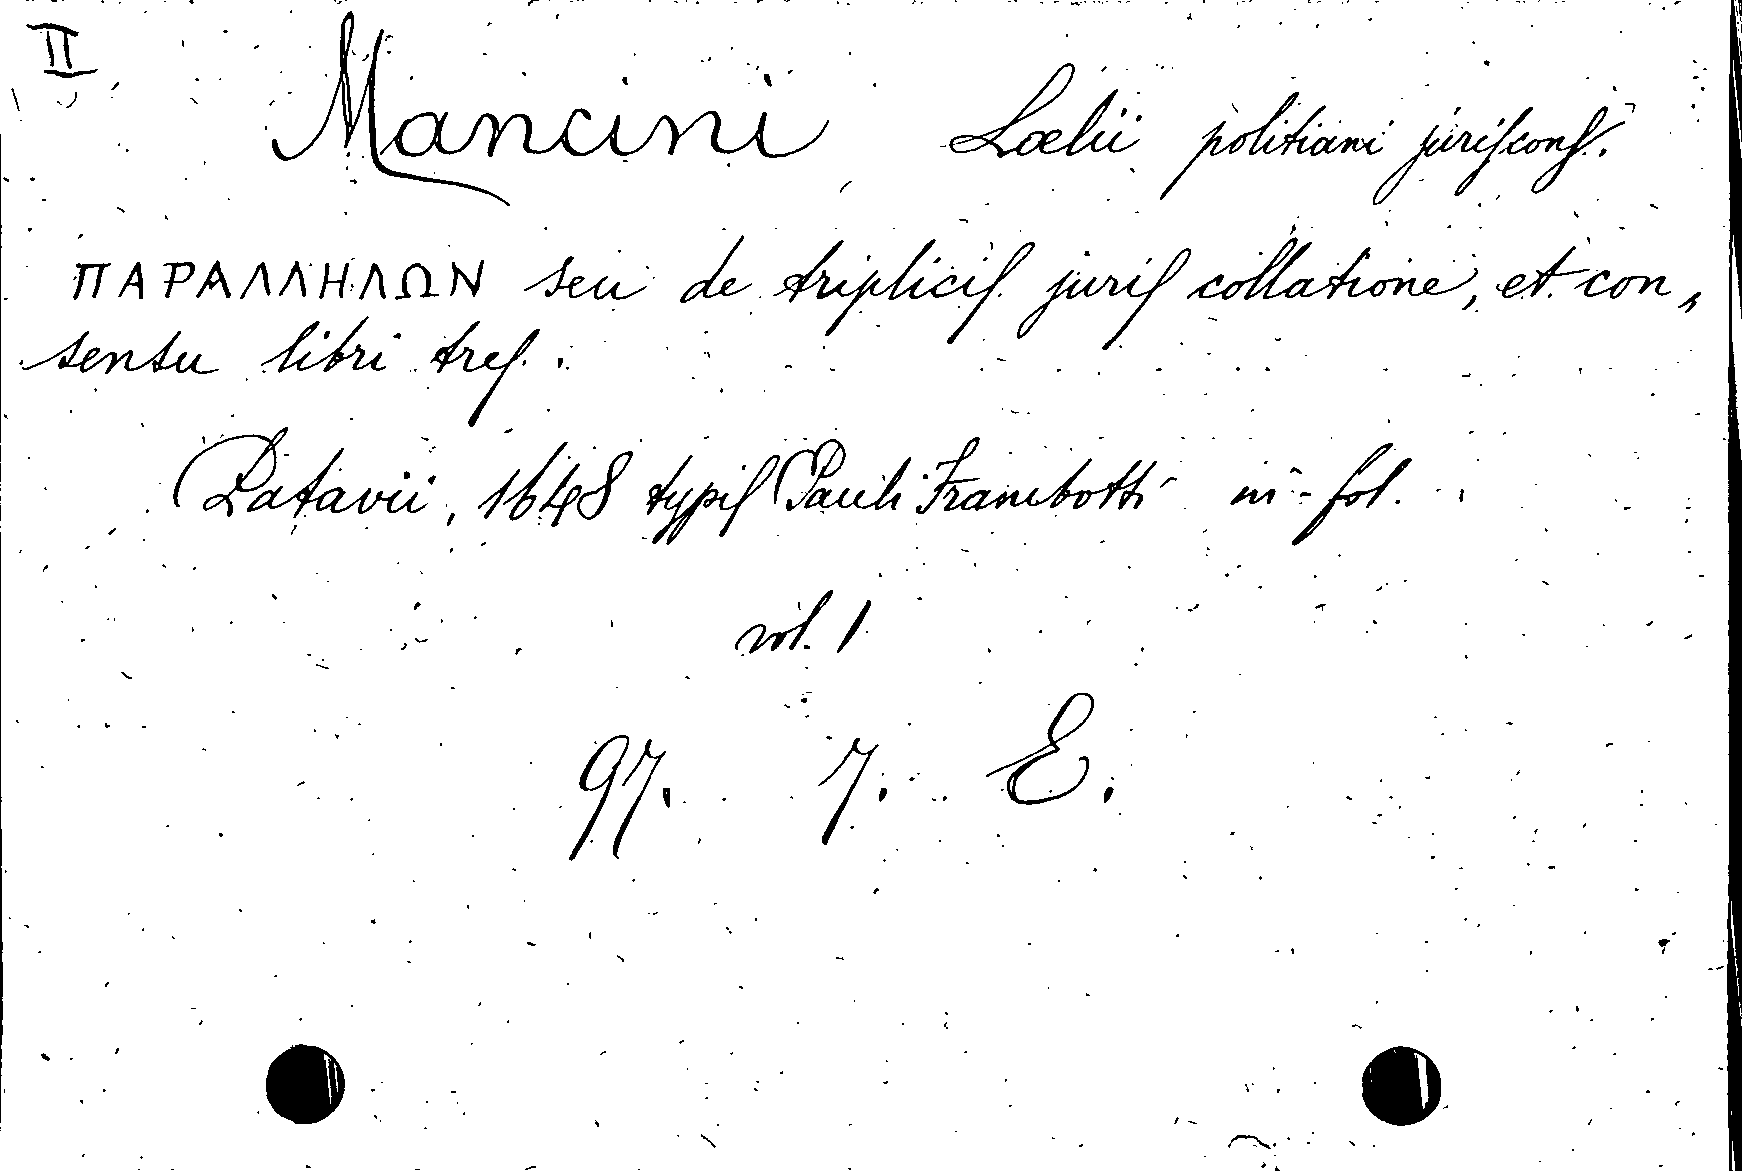 II
Mancini Lælii politiani juriſconſ.
ΠΑΡΑΛΛΗΛΩΝ seu de tripliciſ juriſ collatione, et con„
sensu libri treſ.
Patavii, 1648 typiſ Pauli Frambotti in-fol.
vol. 1
97. 7. E.